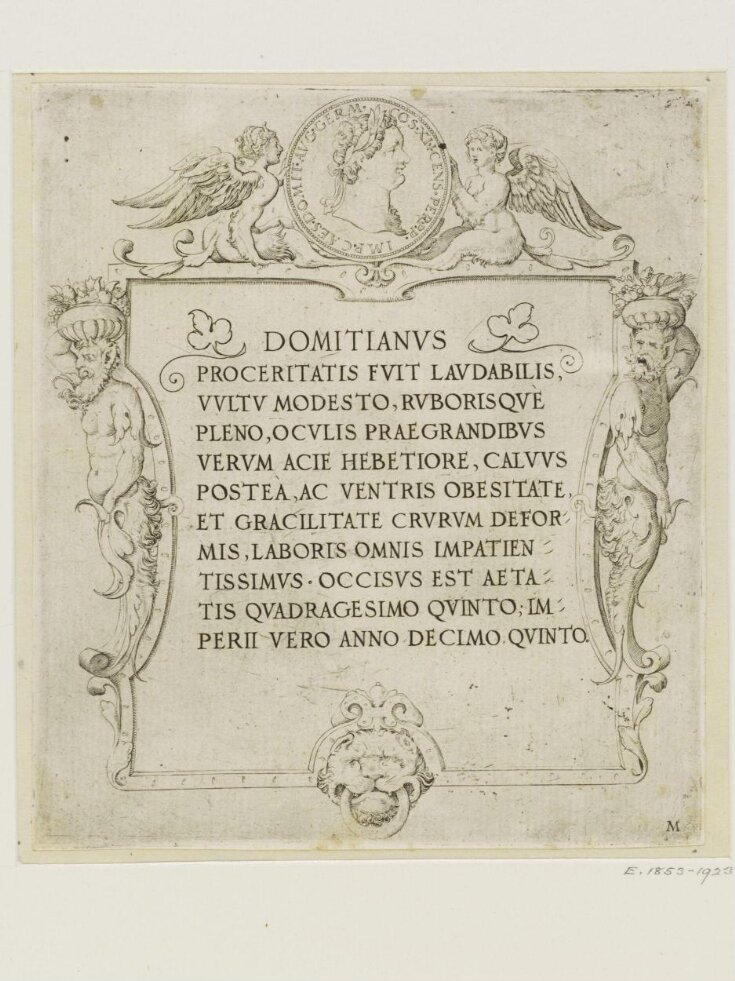 IMP.CAES.DOMIT.AVG.GERM. COS.XI.CENS.PER.P.P.
DOMITIANVS
PROCERITATIS FVIT LAVDABILIS,
VVLTV MODESTO, RVBORISQVÈ
PLENO, OCVLIS PRAEGRANDIBVS
VERVM ACIE HEBETIORE, CALVVS
POSTEÀ, AC VENTRIS OBESITATE,
ET GRACILITATE CRVRVM DEFOR-
MIS, LABORIS OMNIS IMPATIEN-
TISSIMVS. OCCISVS EST AETA-
TIS QVADRAGESIMO QVINTO; IM-
PERII VERO ANNO DECIMO QVINTO.
M
E. 1853-1923